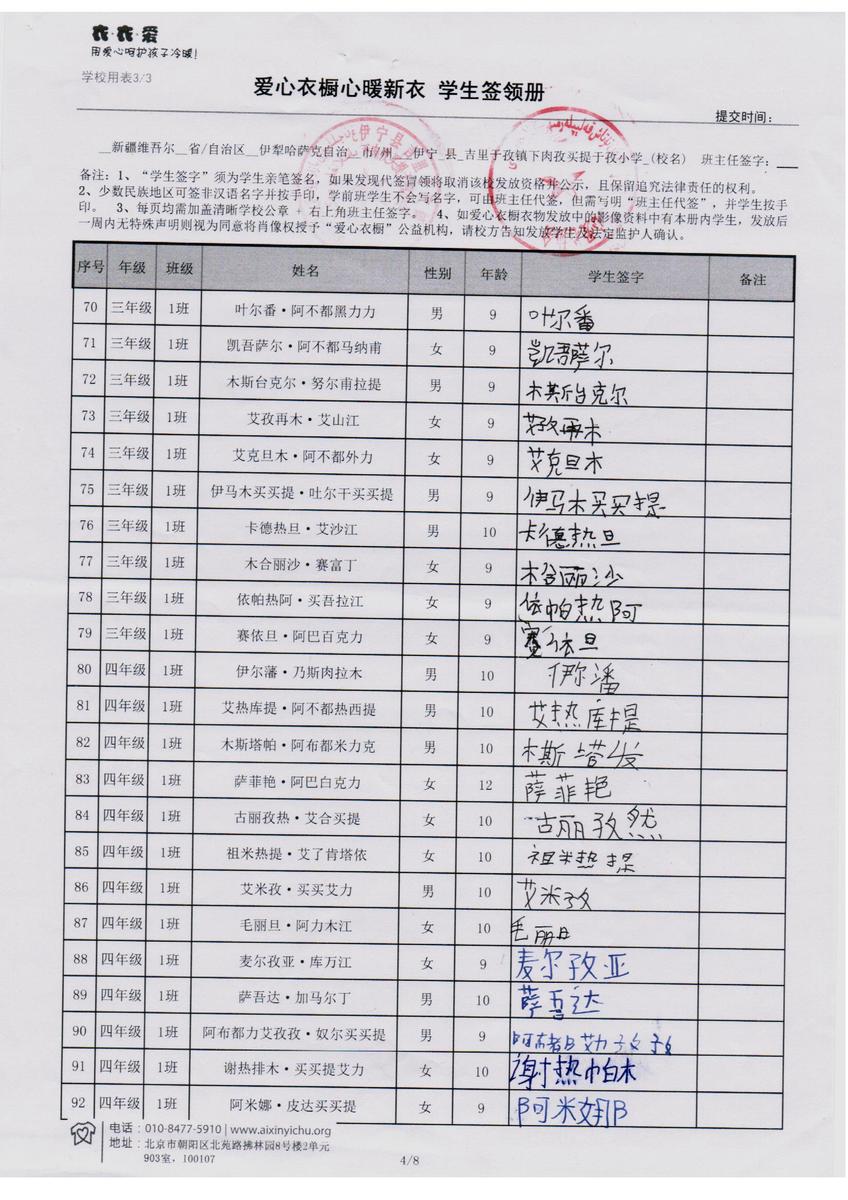 衣·衣·爱
用爱心呵护孩子冷暖!
学校用表3/3
爱心衣橱心暖新衣 学生签领册
提交时间:
__新疆维吾尔__省/自治区__伊犁哈萨克自治__市/州__伊宁_县_吉里于孜镇下肉孜买提于孜小学_(校名) 班主任签字:
备注:1、“学生签字”须为学生亲笔签名,如果发现代签冒领将取消该校发放资格并公示,且保留追究法律责任的权利。
2、少数民族地区可签非汉语名字并按手印,学前班学生不会写名字,可由班主任代签,但需写明“班主任代签”,并学生按手
印。 3、每页均需加盖清晰学校公章 + 右上角班主任签字。 4、如爱心衣橱衣物发放中的影像资料中有本册内学生,发放后
一周内无特殊声明则视为同意将肖像权授予“爱心衣橱”公益机构,请校方告知发放学生及法定监护人确认。
序号 年级 班级 姓名 性别 年龄 学生签字 备注
70 三年级 1班 叶尔番·阿不都黑力力 男 9 叶尔番
71 三年级 1班 凯吾萨尔·阿不都马纳甫 女 9 凯吾萨尔
72 三年级 1班 木斯台克尔·努尔甫拉提 男 9 木斯台克尔
73 三年级 1班 艾孜再木·艾山江 女 9 艾孜再木
74 三年级 1班 艾克旦木·阿不都外力 女 9 艾克旦木
75 三年级 1班 伊马木买买提·吐尔干买买提 男 9 伊马木买买提
76 三年级 1班 卡德热旦·艾沙江 男 10 卡德热旦
77 三年级 1班 木合丽沙·赛富丁 女 9 木合丽沙
78 三年级 1班 依帕热阿·买吾拉江 女 9 依帕热阿
79 三年级 1班 赛依旦·阿巴百克力 女 9 赛依旦
80 四年级 1班 伊尔藩·乃斯肉拉木 男 10 伊尔潘
81 四年级 1班 艾热库提·阿不都热西提 男 10 艾热库提
82 四年级 1班 木斯塔帕·阿布都米力克 男 10 木斯塔发
83 四年级 1班 萨菲艳·阿巴白克力 女 12 萨菲艳
84 四年级 1班 古丽孜热·艾合买提 女 10 古丽孜然
85 四年级 1班 祖米热提·艾了肯塔依 女 10 祖米热提
86 四年级 1班 艾米孜·买买艾力 男 10 艾米孜
87 四年级 1班 毛丽旦·阿力木江 女 10 毛丽旦
88 四年级 1班 麦尔孜亚·库万江 女 9 麦尔孜亚
89 四年级 1班 萨吾达·加马尔丁 男 10 萨吾达
90 四年级 1班 阿布都力艾孜孜·奴尔买买提 男 9
91 四年级 1班 谢热排木·买买提艾力 女 10 谢热帕木
92 四年级 1班 阿米娜·皮达买买提 女 9 阿米娜
电话:010-8477-5910 | www.aixinyichu.org
地址:北京市朝阳区北苑路拂林园8号楼2单元
903室,100107
4/8